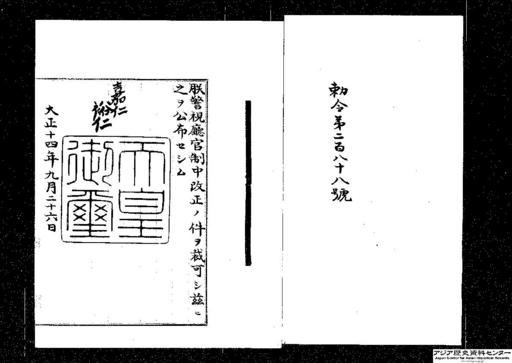 勅令第二百八十八號
朕警視廳官制中改正ノ件ヲ裁可シ茲ニ
之ヲ公布セシム
嘉仁
裕仁
天皇
御璽
大正十四年九月二十六日
アジア歴史資料センター
Japan Center for Asian Historical Records